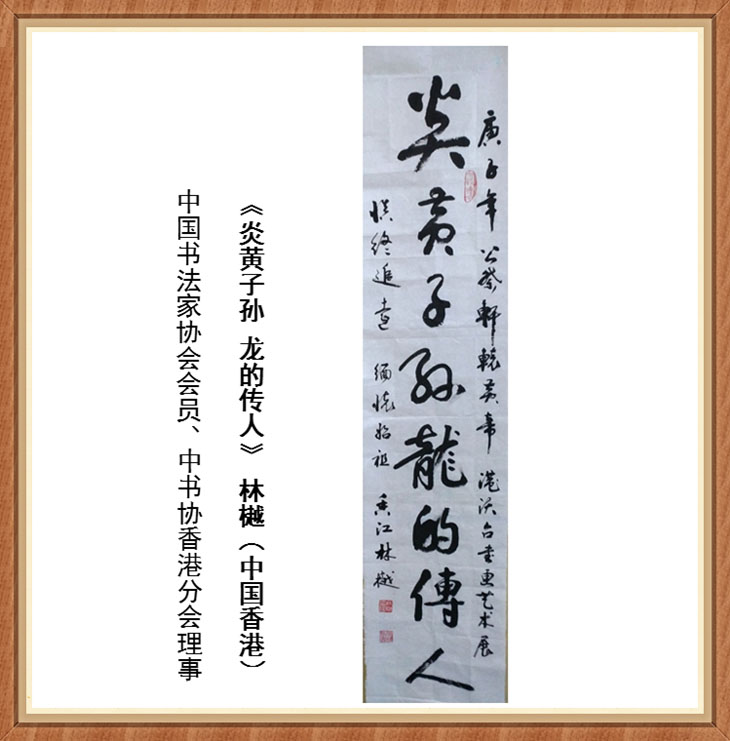 庚子年 公祭軒轅黄帝 港沃台書画艺术展
炎黄子孙龍的傳人
慎终追遠 缅怀始祖 香江林樾
《炎黄子孙 龙的传人》 林樾（中国香港）
中国书法家协会会员、中书协香港分会理事